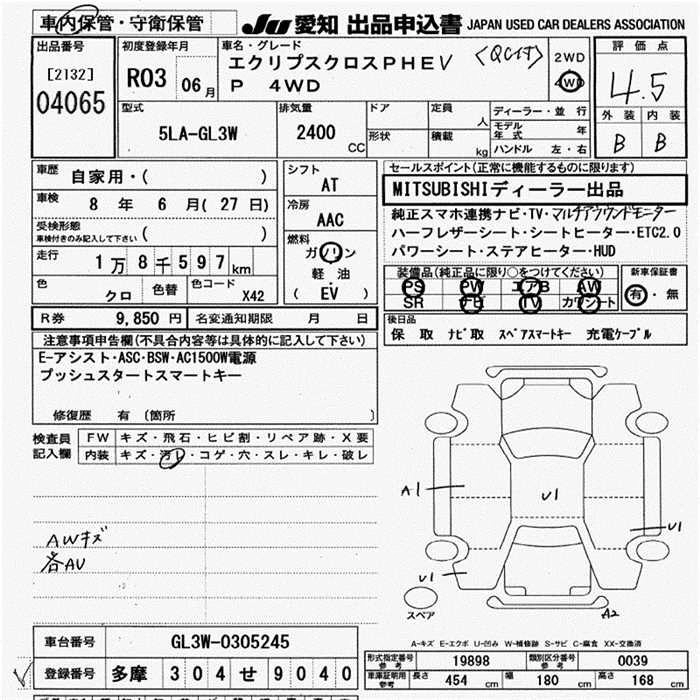 車内保管・守衛保管
JU 愛知 出品申込書 JAPAN USED CAR DEALERS ASSOCIATION
出品番号
[2132]
04065
初度登録年月
R03 06月
車名・グレード
エクリプスクロスPHEV (QC付)
P 4WD
2WD
4WD
評価点
4.5
外装 内装
B B
型式
5LA-GL3W
排気量
2400
CC
ドア
形状
定員
人
積載
kg
ディーラー・並行
モデル年式 年
ハンドル 左・右
車歴
自家用・( )
車検
8年 6月(27日)
受検形態
車検付きのみ記入して下さい ( )
走行
1万8千597km
色
クロ
色替
色コード
X42
シフト
AT
冷房
AAC
燃料
ガソリン
軽油
(EV)
セールスポイント(正常に機能するものに限ります)
MITSUBISHIディーラー出品
純正スマホ連携ナビ・TV・マルチアラウンドモニター
ハーフレザーシート・シートヒーター・ETC2.0
パワーシート・ステアヒーター・HUD
装備品(純正品に限り○をつけてください)
PS PW エアB AW
SR ナビ TV カワシート
新車保証書
有・無
R券 9,850円 名変通知期限 月 日
後日品
保 取 ナビ取 スペアスマートキー 充電ケーブル
注意事項申告欄(不具合内容等は具体的に記入して下さい)
E-アシスト・ASC・BSW・AC1500W電源
プッシュスタートスマートキー
修復歴 有 〔箇所 〕
検査員記入欄
FW キズ・飛石・ヒビ割・リペア跡・X要
内装 キズ・汚レ・コゲ・穴・スレ・キレ・破レ
AWキズ
各AU
A1
U1
U1
U1
スペア
A2
A-キズ E-エクボ U-凹み W-補修跡 S-サビ C-腐食 XX-交換済
車台番号 GL3W-0305245
登録番号 多摩 304 せ 9040
形式指定番号 参考 19898
類別区分番号 参考 0039
車庫証明用 参考 長さ 454 cm 幅 180 cm 高さ 168 cm